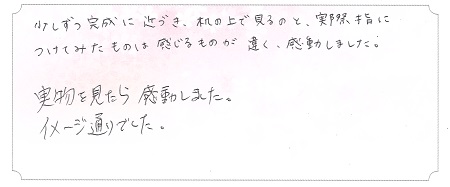 少しずつ完成に近づき、机の上で見るのと、実際指に
つけてみたものは感じるものが違く、感動しました。
実物を見たら感動しました。
イメージ通りでした。